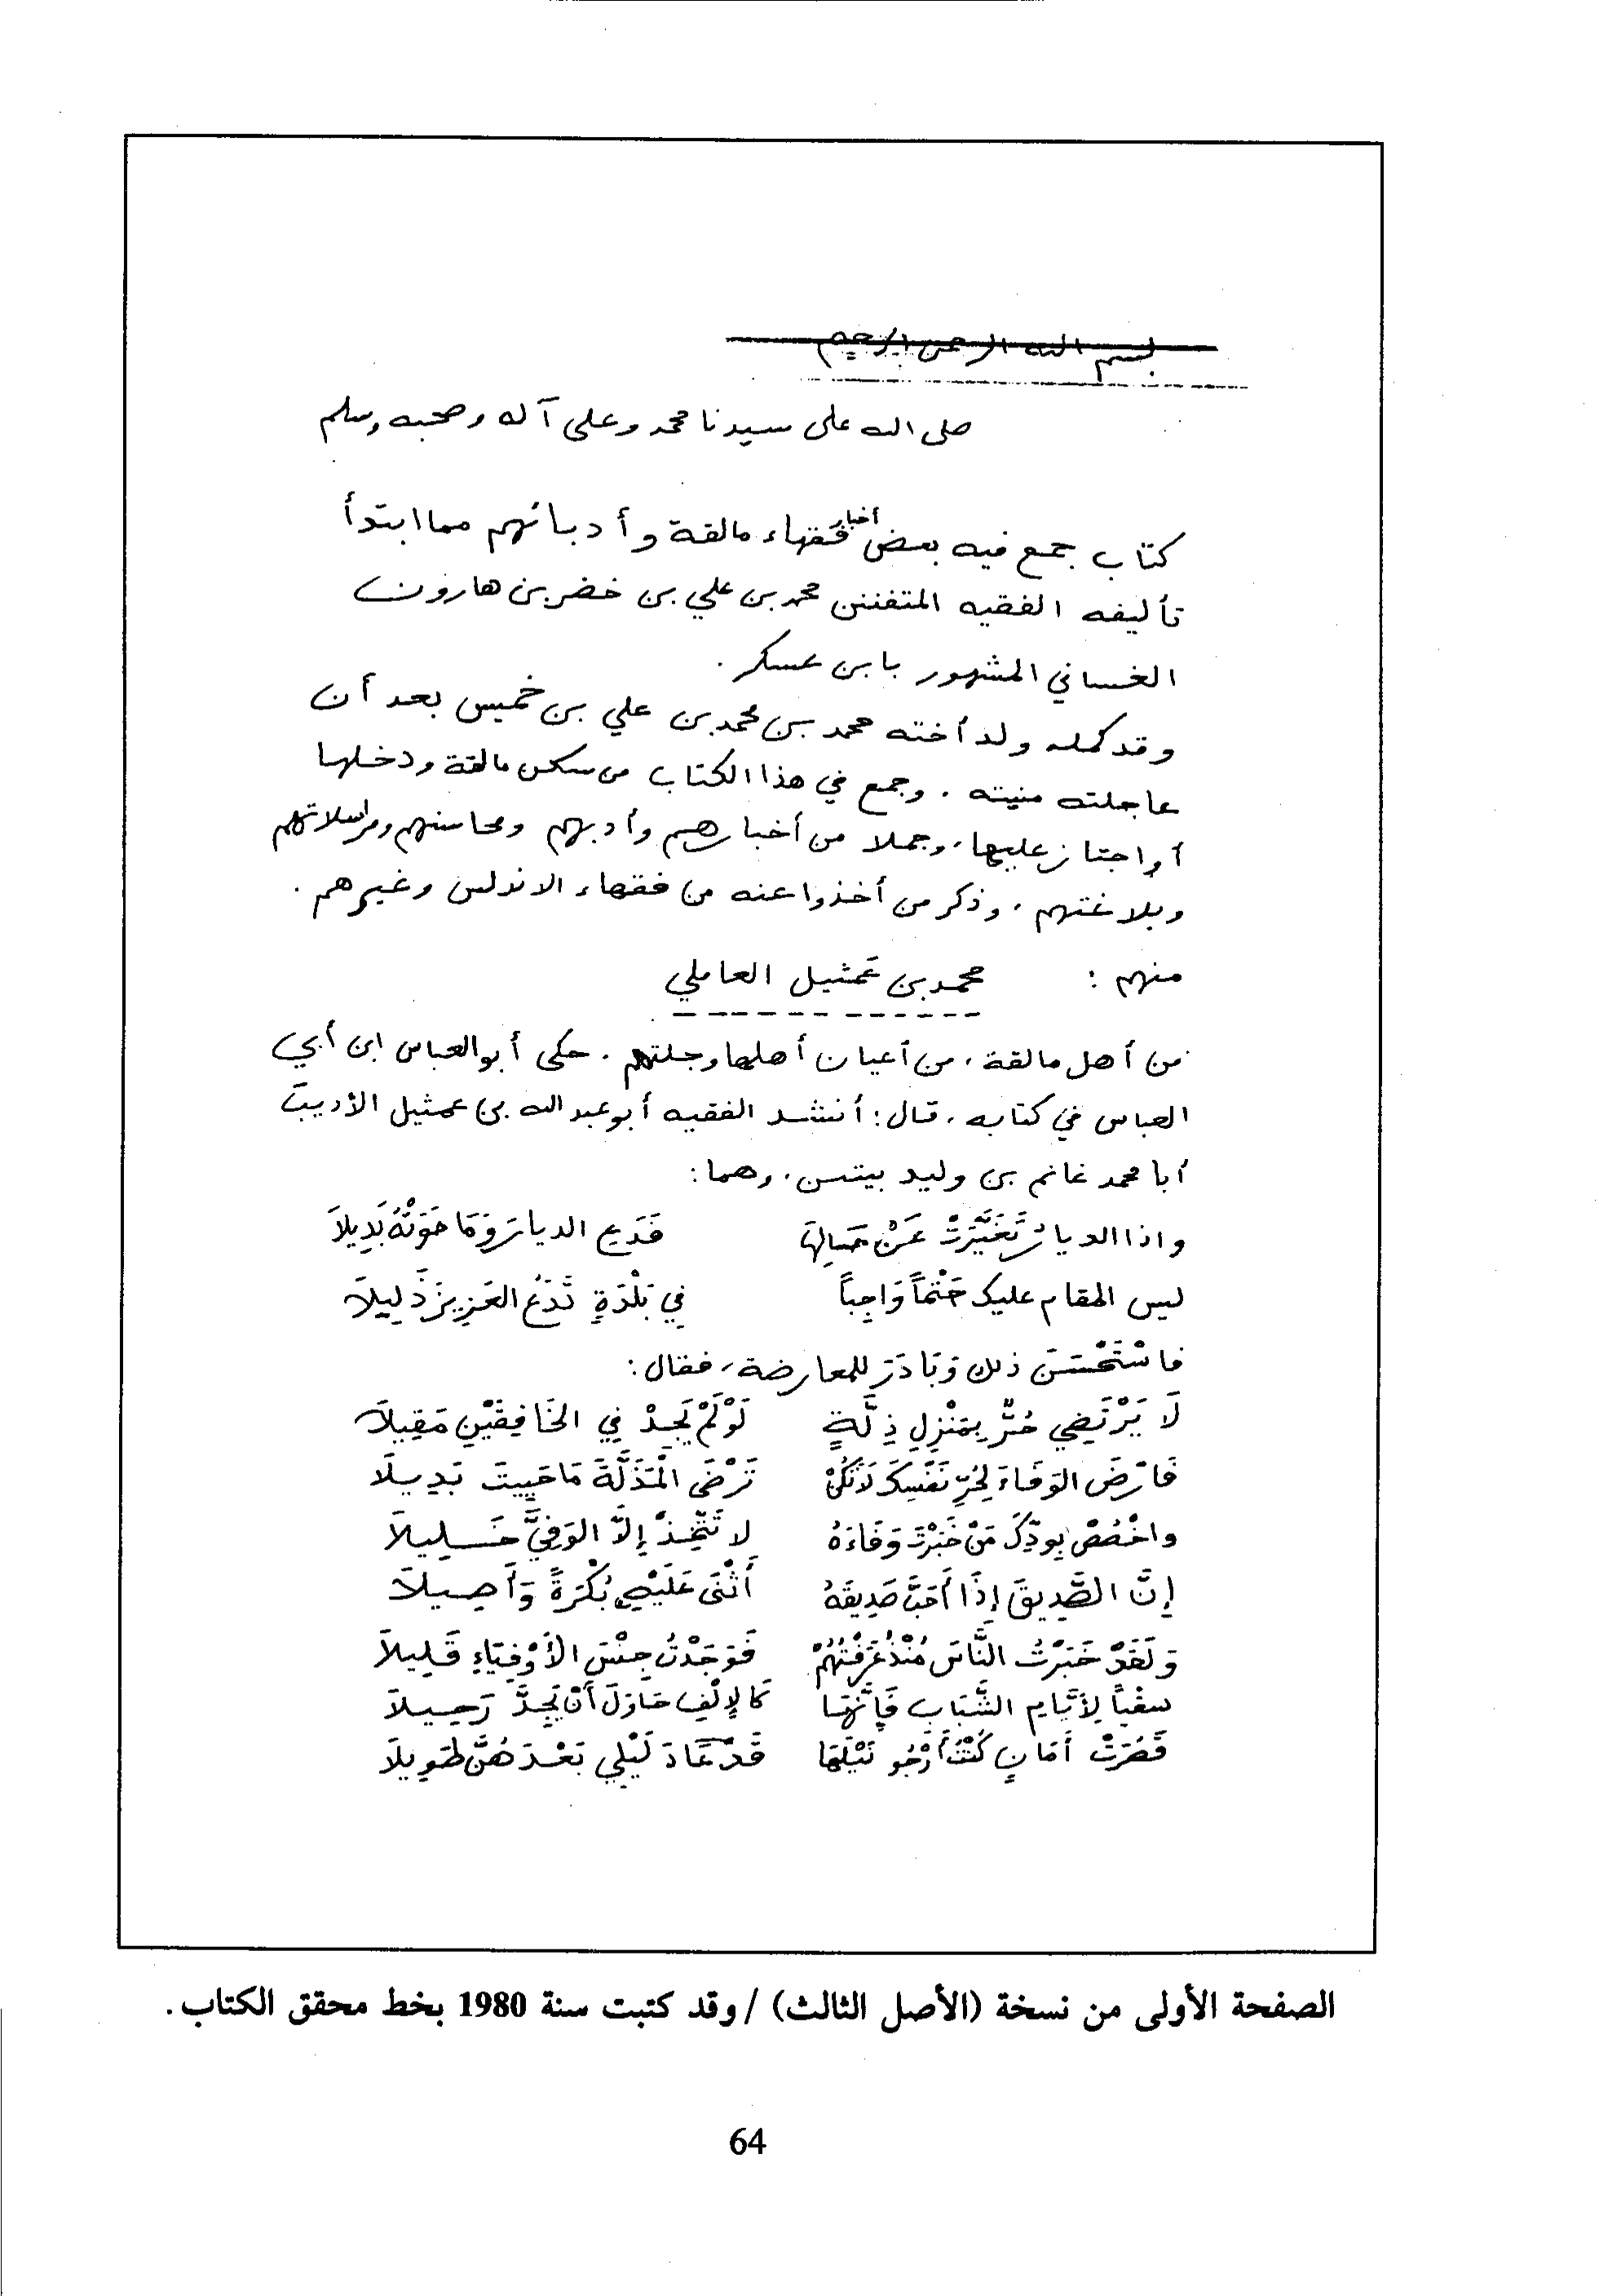 بسم الله الرحمن الرحيم
صلى الله على سيدنا محمد وعلى آله وصحبه وسلم
كتاب جمع فيه بعض أخبار فقهاء مالقة وأدبائهم مما ابتدأ
تأليفه الفقيه المتفنن محمد بن علي بن خضر بن هارون
الغساني المشهور بابن عسكر .
وقد كمله ولد أخته محمد بن محمد بن علي بن خميس بعد أن
عاجلته منيته . وجمع في هذا الكتاب من سكن مالقة ودخلها
أو اجتاز عليها، وجملا من أخبارهم وأدبهم ومحاسنهم ومراسلاتهم
وبلاغتهم ، وذكر من أخذوا عنه من فقهاء الاندلس وغيرهم .
منهم : محمد بن عَمثيل العاملي
من أهل مالقة ، من أعيان أهلها وجلتهم . حكى أبو العباس ابن أبي
العباس في كتابه ، قال : أنشد الفقيه أبو عبد الله بن عمثيل الأديبَ
أبا محمد غانم بن وليد بيتين ، وهما :
واذا الديارُ تَغَيَّرَتْ عَنْ حَالِهَا فَدَعِ الديارَ وَمَا حَوَتْهُ بَدِيلاَ
ليس المقام عليك حَتْماً وَاجِباً فِي بَلْدَةٍ تَدَعُ العَزِيزَ ذَلِيلاَ
فاسْتَحْسَنَ ذلك وَبَادَرَ للمعارضة ، فقال :
لَا يَرْتَضِي حُرٌّ بِمَنْزِلِ ذِلَّةٍ لَوْ لَمْ يَجِدْ فِي الخَافِقَيْنِ مَقِيلاَ
فَارْضَ الوَفَاءَ لِحُرِّ نَفْسِكَ لاَ تَكُنْ تَرْضَى الْمَذَلَّةَ مَا حَيِيتَ بَدِيلَا
واخْصُصْ بِوِدِّكَ مَنْ خَبَرْتَ وَفَاءَهُ لا تَتَّخِذْ إِلاَّ الوَفِيَّ خَلِيلاَ
إِنَّ الصَّدِيقَ إِذَا أَحَبَّ صَدِيقَهُ أَثْنَى عَلَيْهِ بُكْرَةً وَأَصِيلاَ
وَلَقَدْ خَبَرْتُ النَّاسَ مُنْذُ عَرَفْتُهُمْ فَوَجَدْتُ جِنْسَ الأَوْفِيَاءِ قَلِيلاَ
سقْياً لِأَيَّامِ الشَّبَابِ فَإِنَّهَا كَالإِلْفِ حَاوَلَ أَنْ يَجِدَّ رَحِيلاَ
قَصُرَتْ أَمَانٍ كُنْتُ أَرْجُو نَيْلَهَا قَدْ عَادَ لَيْلِي بَعْدَهُنَّ طَوِيلاَ
الصفحة الأولى من نسخة (الأصل الثالث) / وقد كتبت سنة 1980 بخط محقق الكتاب .
64